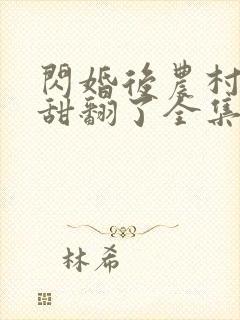 閃婚後農村
甜翻了全集
林希